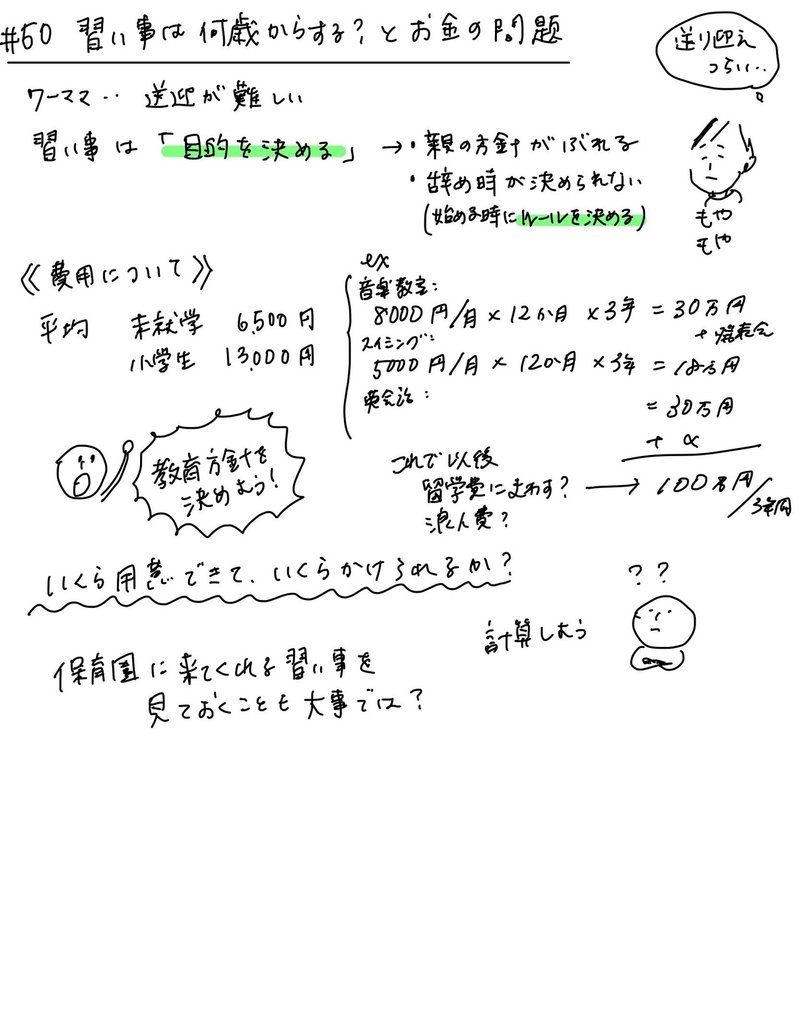 #50 習い事は何歳からする?とお金の問題
送り迎え
つらい..
ワーママ.. 送迎が難しい
習い事は「目的を決める」→・親の方針がぶれる
・辞め時が決められない
(始める時にルールを決める)
もや
もや
《費用について》
平均 未就学 6,500円
小学生 13,000円
ex
音楽教室:
8000円/月×12か月×3年=30万円
+発表会
スイミング:
5000円/月×12か月×3年=18万円
英会話:
=30万円
+α
100万円/3年間
教育方針を
決めよう!
これで以後
留学費にまわす?→
浪人費?
いくら用意できて、いくらかけられるか?
??
計算しよう
保育園に来てくれる習い事を
見ておくことも大事では?